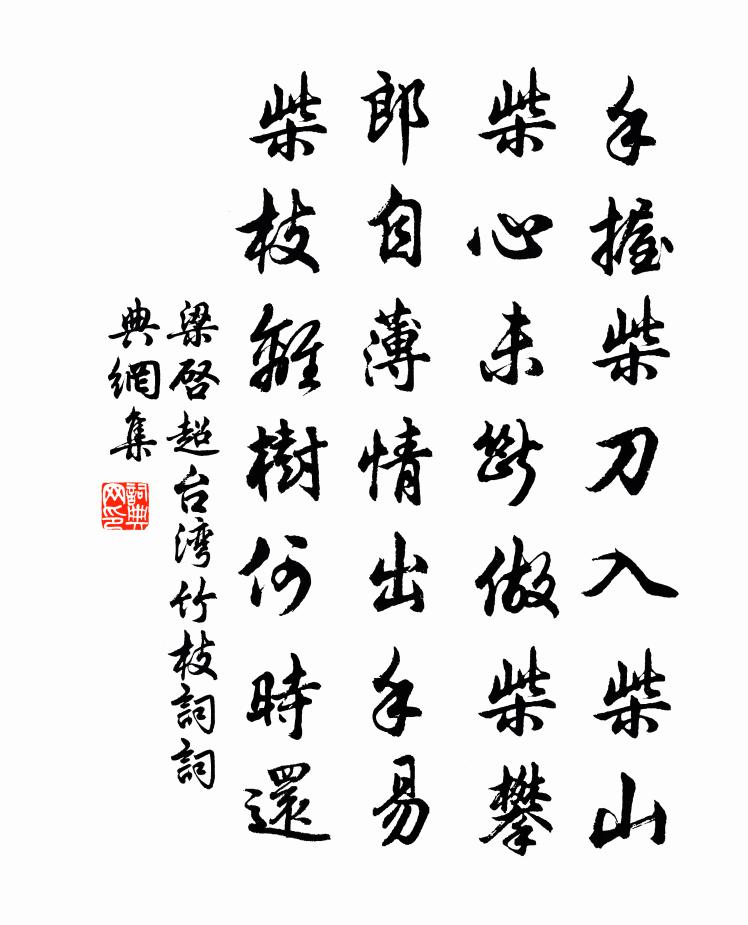 手握柴刀入柴山
柴心未斷做柴攀
郎自薄情出手易
柴枝離樹何時還
梁啓超台湾竹枝詞詞
典網集
詞典
网印